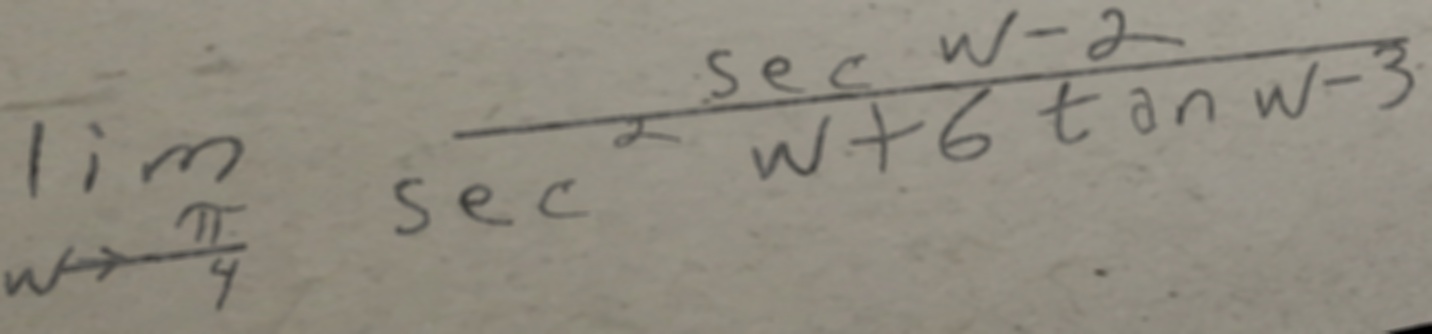 \lim_{w \to \frac{\pi}{4}} \frac{\sec w - 2}{\sec^2 w + 6 \tan w - 3}